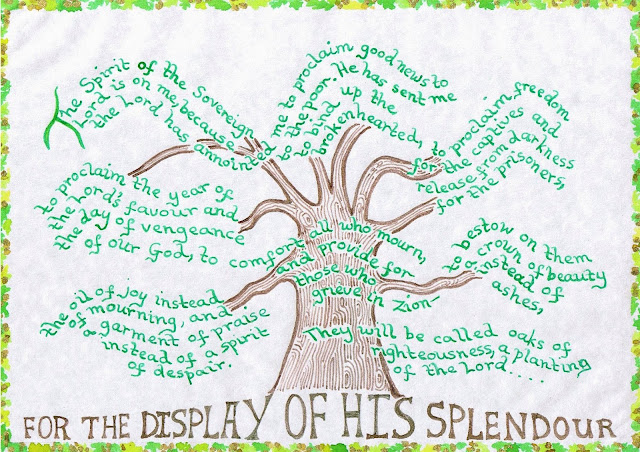 The Spirit of the Sovereign
Lord is on me, because
the Lord has annointed me to proclaim good news to
to the poor. He has sent me
to bind up the
brokenhearted, to proclaim freedom
for the captives and
release from darkness
for the prisoners,
to proclaim the year of
the Lord's favour and
the day of vengeance
of our God, to comfort all who mourn,
and provide for
those who
grieve in Zion—
to bestow on them
a crown of beauty
instead of
ashes,
the oil of joy instead
of mourning, and
a garment of praise
instead of a spirit
of despair.
They will be called oaks of
righteousness, a planting
of the Lord....
FOR THE DISPLAY OF HIS SPLENDOUR